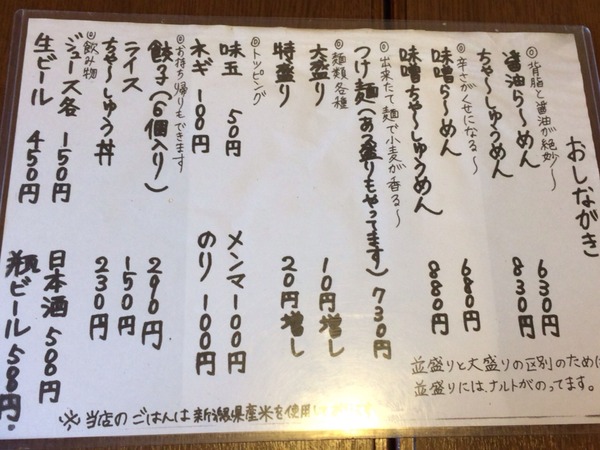 おしながき
◎背脂と醤油が絶妙〜
醤油ら〜めん 630円
ちゃ〜しゅうめん 830円
◎辛さがくせになる〜
味噌ら〜めん 680円
味噌ちゃ〜しゅうめん 880円
◎出来たて麺で小麦が香る〜
つけ麺(あつ盛りもやってます) 730円
◎麺類各種
大盛り 10円増し
特盛り 20円増し
◎トッピング
味玉 50円 メンマ100円
ネギ 180円 のり 100円
◎お持ち帰りもできます
餃子(6個入り) 290円
ライス 150円
ちゃ〜しゅう丼 230円
◎飲み物
ジュース各 150円 日本酒 500円
生ビール 450円 瓶ビール 500円
並盛りと大盛りの区別のため
並盛りには、ナルトがのってます。
※当店のごはんは新潟県産米を使用